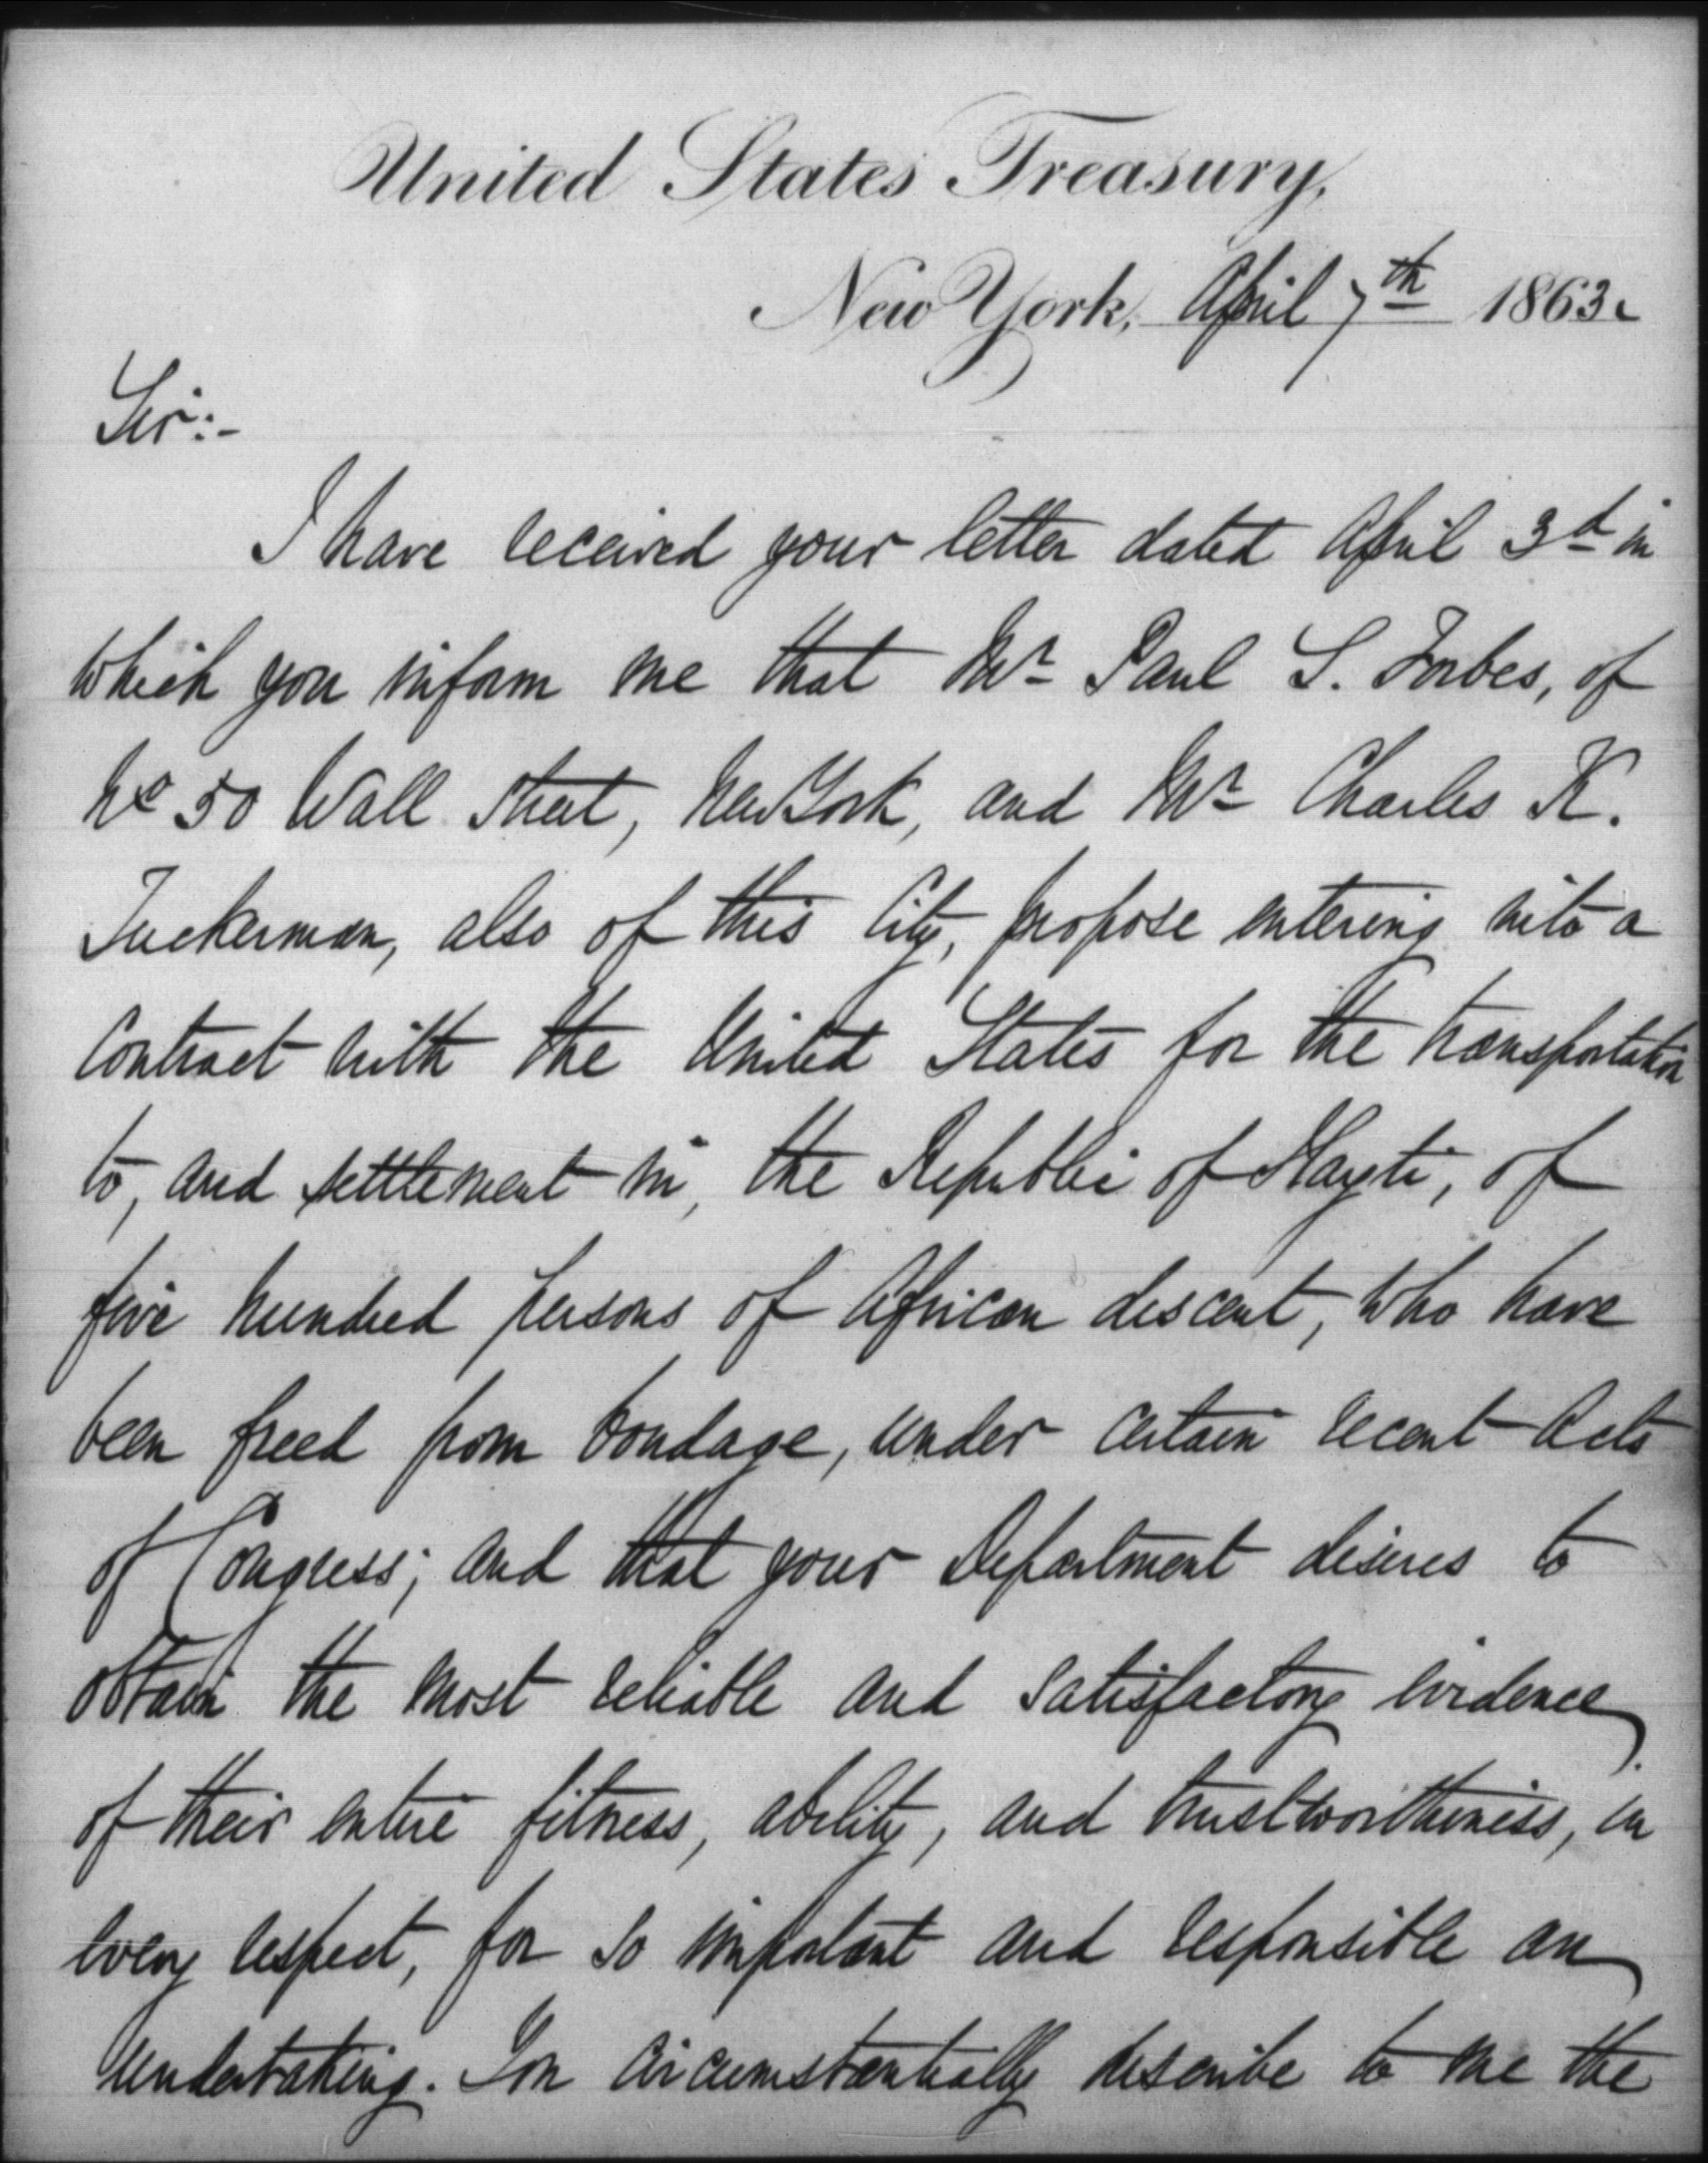 United States Treasury,
New York, April 7th 1863.
Sir:-
I have received your letter dated April 3d in
which you inform me that Mr Paul S. Forbes, of
No 50 Wall Street, New York, and Mr Charles K.
Tuckerman, also of this City, propose entering into a
Contract with the United States for the transportation
to, and settlement in, the Republic of Hayti, of
five hundred persons of African descent, who have
been freed from bondage, under certain recent Acts
of Congress; and that your Department desires to
obtain the most reliable and satisfactory evidence
of their entire fitness, ability, and trustworthiness, in
every respect, for so important and responsible an
undertaking. You circumstantially describe to me the